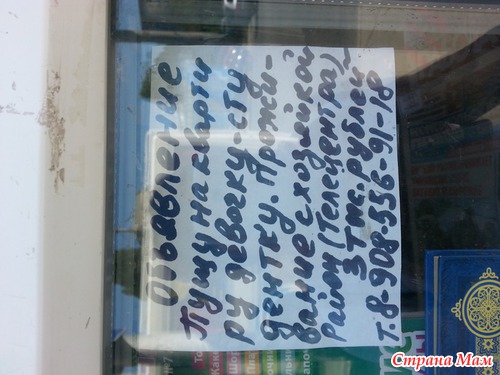 Объявление
Пущу на кварти
ру девочку-сту
дентку. Прожи-
вание с хозяйкой
район (Телецентра)
3 тыс. рублей
т. 8-908-556-91-18
Страна Мам